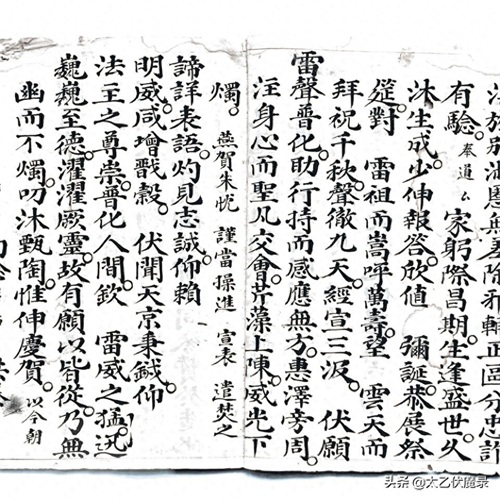 恩無差除邪
正區分
有驗。奉道厶 家躬際昌期。生逢盛世。久
沐生成。少伸報答。欣值 彌誕。恭展祭
筵。對 雷祖而嵩呼萬壽。望 雲天而
拜祝千秋。聲徹九天。經宣三汲。 伏願
雷聲普化。助行持而感應無方。惠澤旁周。
注身心而聖凡交會。芹藻上陳。威光下
燭。 燕賀末忱 謹當操進 宣表 遣焚之
諦詳表語。灼見志誠。仰賴
明威。咸增戩穀。 伏聞天京秉鉞。仰
法王之尊崇。普化人間。欽 雷威之猛迅。
巍巍至德。濯濯厥靈。故有願以皆從。乃無
幽而不燭。叨沐甄陶。惟伸慶賀。以今朝
头条 @太乙伏魔录